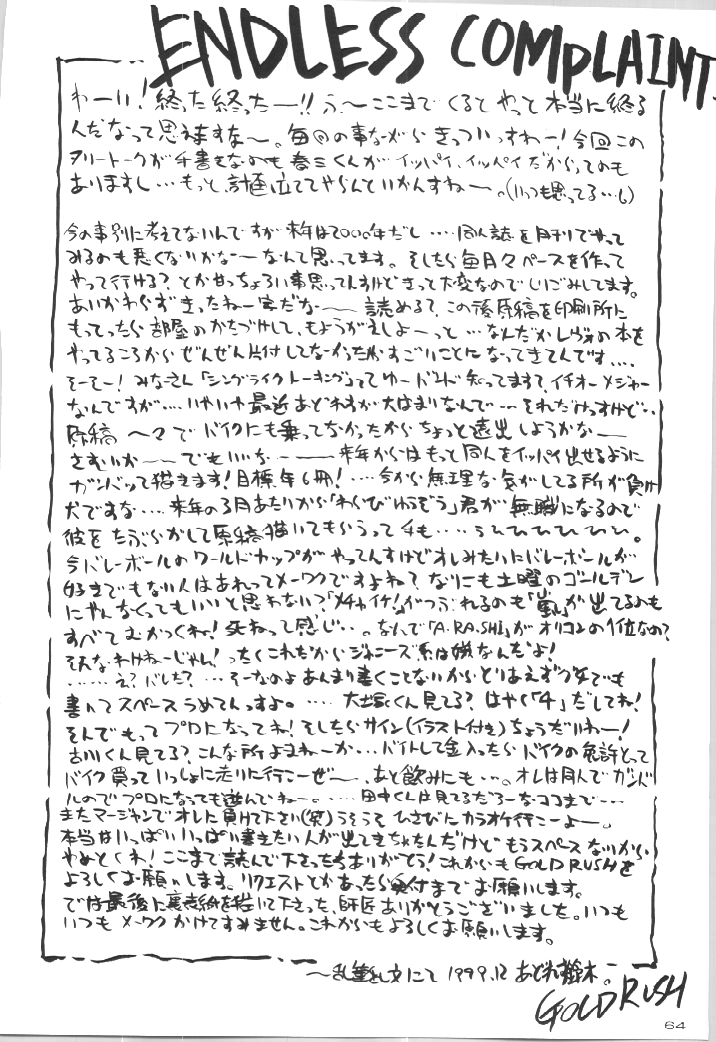 ENDLESS COMPLAINT
わーい!終った終ったー!!う、〜ここまでくるとやっと本当に終る
んだなって思えますな〜。毎回の事ながらきっついっすわー!今回この
フリートークが手書きなのも春三くんがイッパイ、イッパイだからってのも
ありますし…もっと計画立ててやらんといかんすねー。(いつも思ってる…)
今の事別に考えてないんですが来年は2000年だし….同人誌を月刊でやって
みるのも悪くないかなーなんて思ってます。そしたら毎月々ペースを作って
やって行ける?とかせっちょろい事思ってんすけどきって大変なのでしいごみしてます。
あいかわらずきったねー字だな〜 読める?この後原稿を印刷所に
もってったら部屋のかたづけして、もようがえしよーっと…なんだかレヴォの本を
やってるころからぜんぜん片付してなかったからすごいことになってきてんです….
そーそー!みなさん「シングライクトーキング」ってゆーバンド知ってます?イチオーメジャー
なんですが….いやいや最近あどれすが大はまりなんで…それだけっすけど..
原稿 〜々でバイクにも乗ってなかったからちょっと遠出しようかなー
さむいかー でもいいなー 来年からはもっと同人をイッパイ出せるように
ガンバって描きます!目標年6冊!….今から無理な気がしてる所が負け
犬ですな….来年の3月あたりから「わらびゆうぞう」君が無職になるので
彼をたぶらかして原稿描いてもらうって手も…うひひひひひ。
今バレーボールのワールドカップがやってんすけどオレみたいにバレーボールが
好きでもない人はあれってメーワクですよね?なにも土曜のゴールデン
にやんなくってもいいと思わない?「メチャイケ!」がつぶれるのも「嵐」が出てるのも
すべてむかつくね!死ねって感じ..。なんで「A.RA.SHI」がオリコンの1位なの?
そんなわけねーじゃん!ったくこれだからジャニーズ系は嫌なんだよ!
……え?バレた?…そーなのよあんまり書くことないからとりあえず字でも
書いてスペースうめてんっすよ。….大塚くん見てる?はやく「4」だしてね!
そんでもってプロになってね!そしたらサイン(イラスト付き)ちょうだいねー!
古川くん見てる?こんな所よまねーか…バイトして金入ったらバイクの免許とって
バイク買っていっしょに走りに行こーぜ〜、あと飲みにも…。オレは同人でガンバ
ルのでプロになっても遊んでねー。….田中くんは見てるだろーなココまで….
またマージャンでオレに負けて下さい(笑)うそうそひさびにカラオケ行こーよー。
本当はいっぱいいっぱい書きたい人が出てきちゃたんだけどもうスペースないから
やめとくね!ここまで読んで下さったちありがとう!これからもGOLD RUSHを
よろしくお願いします。リクエストとかあったら奥付までお願いします。
では最後に裏表紙を描いて下さった、師匠ありがとうございました。いつも
いつもメーワクかけてすみません。これからもよろしくお願いします。
〜乱筆乱文にて 1999.12 あどれす鈴木。
GOLD RUSH
64